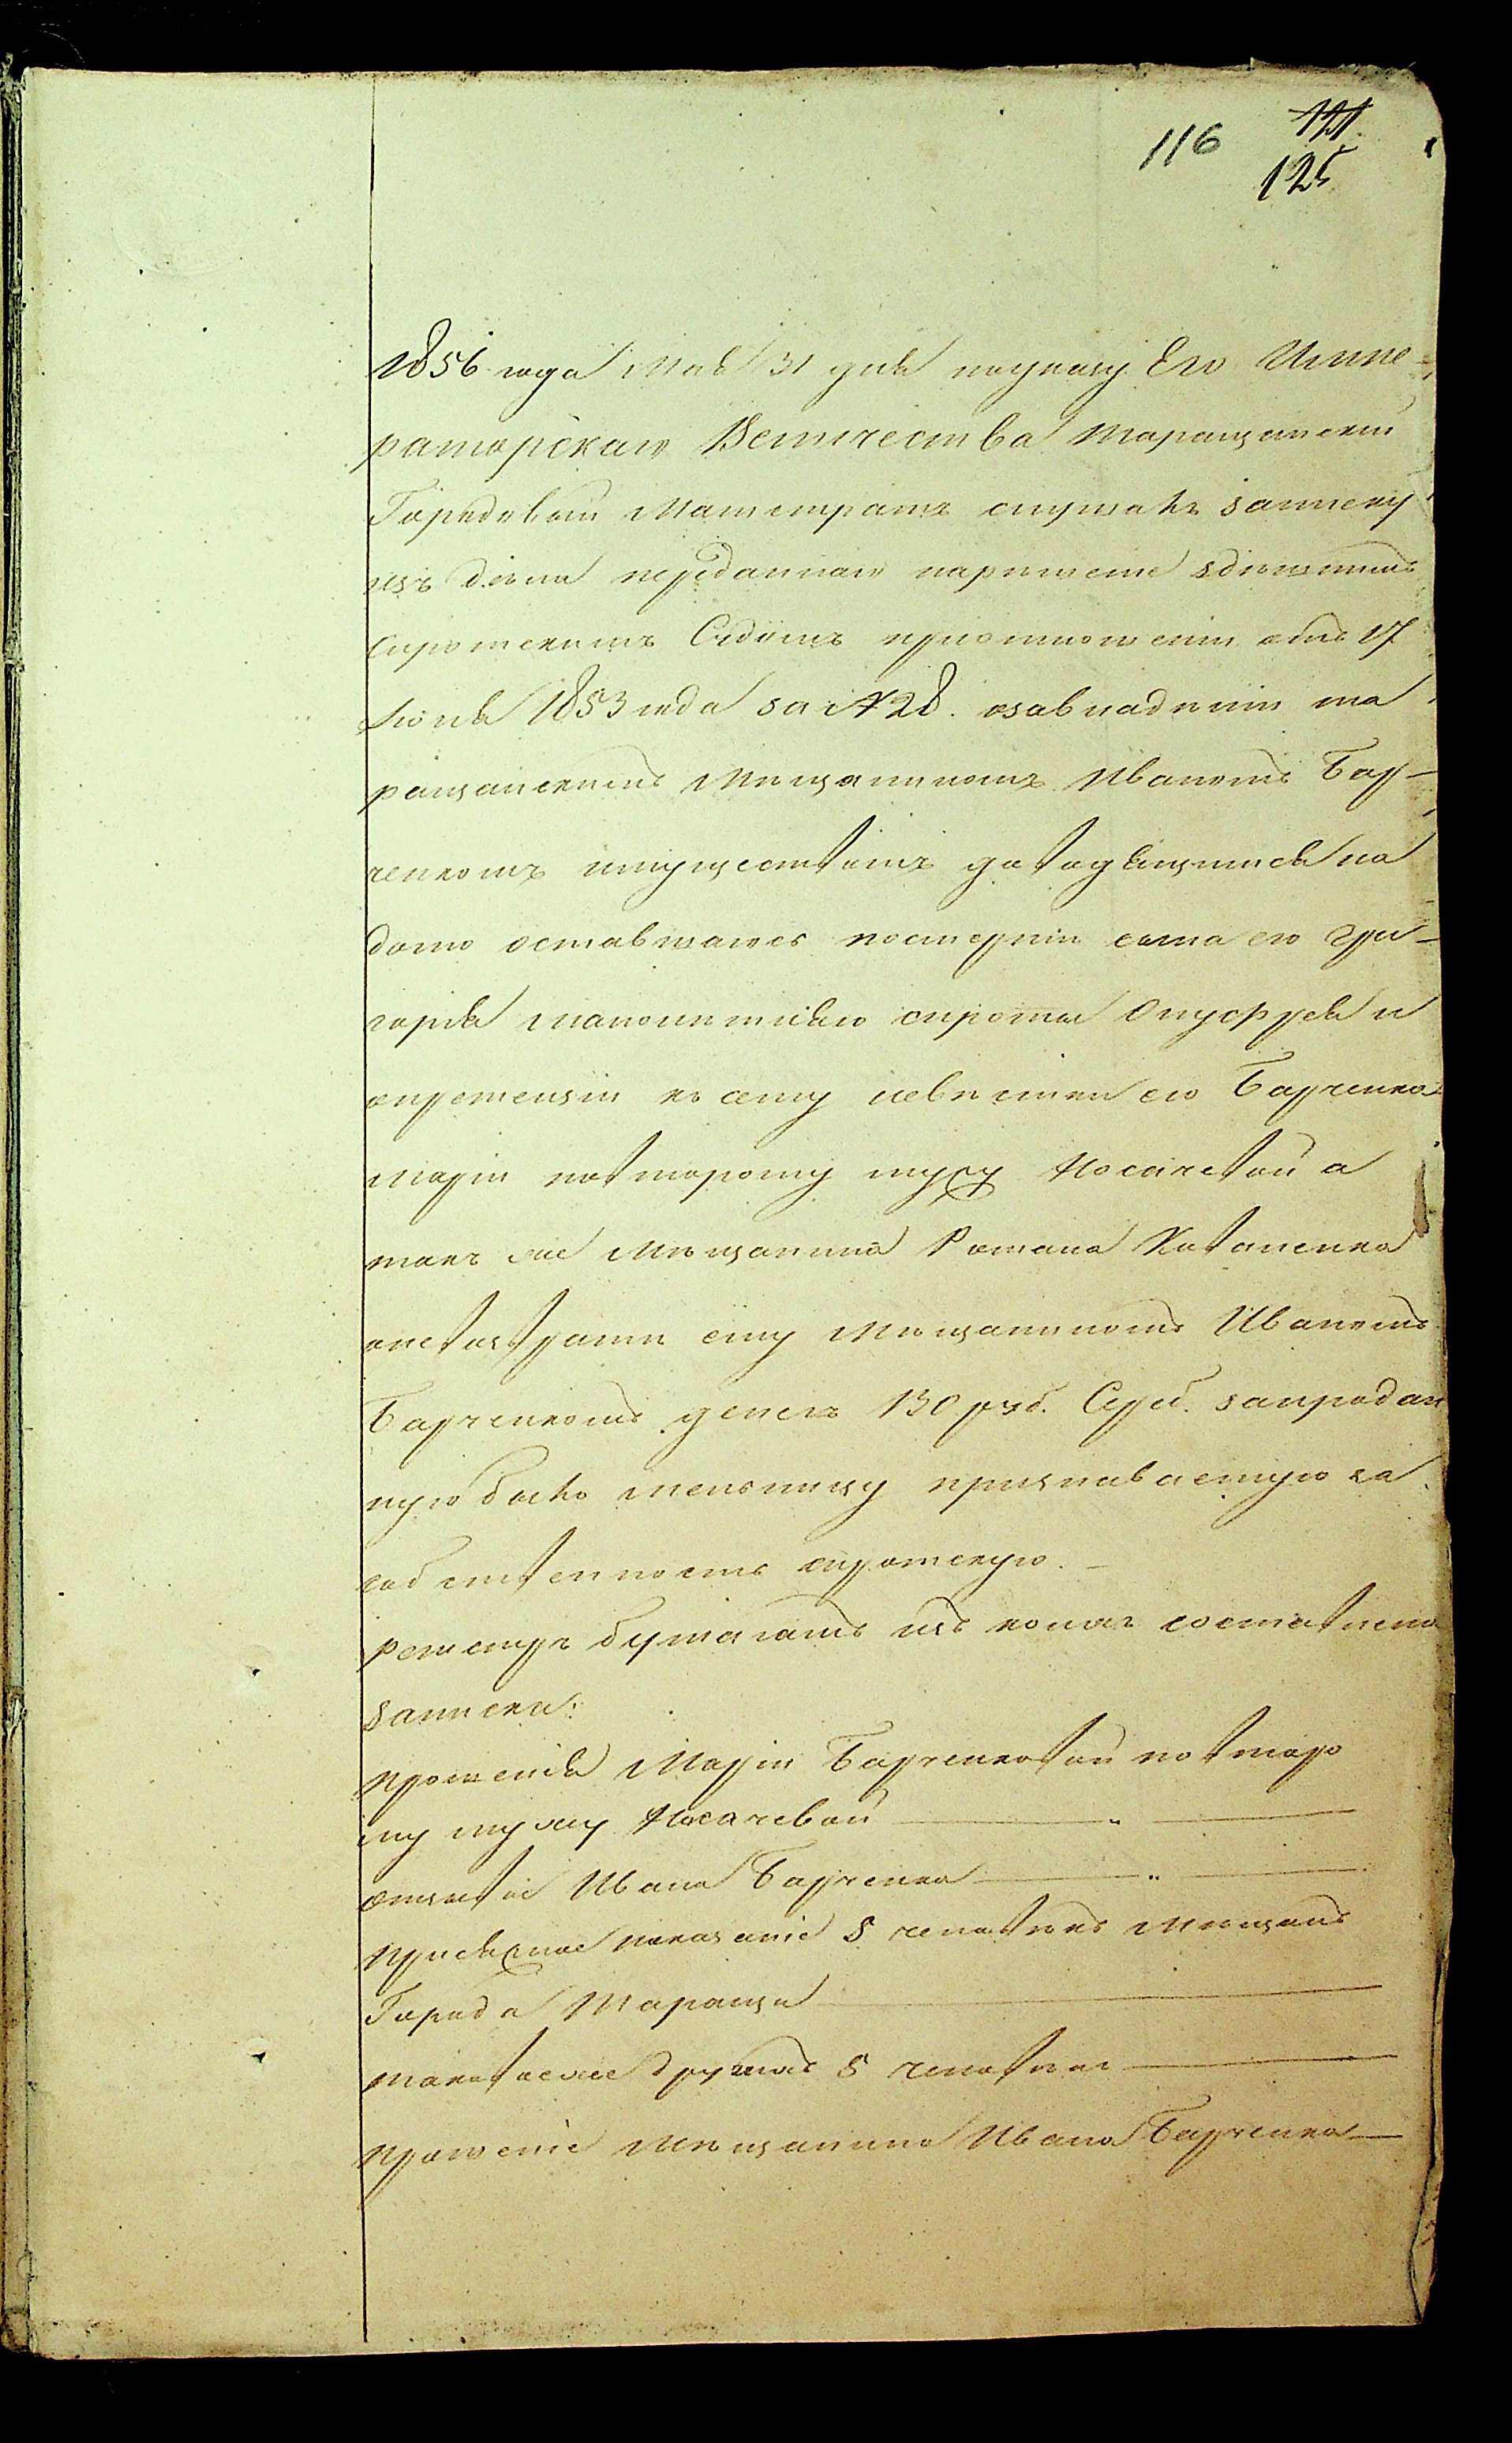 116 121
125
1856 года Мая 31 дня поуказу Его Импе-
раторскаго Величества Таращанский
Городовый Магистратъ слушалъ записку
изъ дѣла переданнаго нарѣшеніе здѣшнимъ
Сиротскимъ Судомъ приотношеніи отъ 17
Іюня 1853 года за №28. озавладѣніи та
ращанскимъ мѣщаниномъ Иваномъ Бар-
ченкомъ имуществомъ доводящимся на
долю оставшагося послѣ смерти сына его Гри-
горія малолѣтняго сироты Онуфрея и
опретензіи къ сему невѣстки его Барченка
Маріи повторому мужу Носачевой а
такъ же мѣщанина Романа Коваленка
овозвратѣ ему мѣщаниномъ Иваномъ
Барченкомъ денегъ 130 руб. Сереб. запродан
ную было мельницу признаваемую за
собственность сиротскую. -
реестръ бумагамъ изъ коихъ составлена
записка:
прошенія Маріи Барченковой повторо
му мужу Носачевой "
отзывъ Ивана Барченка "
присяжное показаніе 8 человѣкъ мѣщанъ
Города Таращи
таковое же другихъ 8 человѣкъ
прошеніе мѣщанина Ивана Барченка